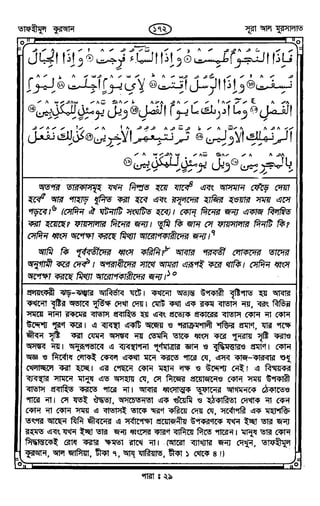 তাফহীমুল কুরআন
১৭২
সূরা আল মুরসালাত
فَإِذَا النُّجُومُ طُمِسَتْ ۝ وَإِذَا السَّمَاءُ فُرِجَتْ ۝ وَإِذَا الْجِبَالُ
نُسِفَتْ ۝ وَإِذَا الرُّسُلُ أُقِّتَتْ ۝ لِأَيِّ يَوْمٍ أُجِّلَتْ ۝ لِيَوْمِ
الْفَصْلِ ۝ وَمَا أَدْرٰىكَ مَا يَوْمُ الْفَصْلِ ۝ وَيْلٌ يَّوْمَئِذٍ لِّلْمُكَذِّبِينَ ۝
أَلَمْ نُهْلِكِ الْأَوَّلِينَ ۝ ثُمَّ نُتْبِعُهُمُ الْآخِرِينَ ۝ كَذٰلِكَ نَفْعَلُ
بِالْمُجْرِمِينَ ۝ وَيْلٌ يَّوْمَئِذٍ لِّلْمُكَذِّبِينَ ۝
অতপর তারকাসমূহ যখন নিষ্প্রভ হয়ে যাবে এবং আসমান ফেঁড়ে দেয়া
হবে আর পাহাড় ধুনিত করা হবে এবং রসূলদের হাজির হওয়ার সময় এসে
পড়বে। (সেদিন ঐ ঘটনাটি সংঘটিত হবে)। কোন্ দিনের জন্য একাজ বিলম্বিত
করা হয়েছে? ফায়সালার দিনের জন্য। তুমি কি জান সে ফায়সালার দিনটি কি?
সেদিন ধ্বংস অপেক্ষা করছে মিথ্যা আরোপকারীদের জন্য।
আমি কি পূর্ববর্তীদের ধ্বংস করিনি? আবার পরবর্তী লোকদের তাদের
অনুগামী করে দেব। অপরাধীদের সাথে আমরা এরূপই করে থাকি। সেদিন ধ্বংস
অপেক্ষা করছে মিথ্যা আরোপকারীদের জন্য।
প্রলয়ংকরী ঝড়-ঝঞ্ঝার আবির্ভাব ঘটে। কখনো অত্যন্ত উপকারী বৃষ্টিপাত হয় আবার
কখনো বৃষ্টির অভাবে দুর্ভিক্ষ দেখা দেয়। মোট কথা এক রকম বাতাস নয়, বরং বিভিন্ন
সময়ে নানা রকমের বাতাস প্রবাহিত হয় এবং প্রত্যেক প্রকারের বাতাস কোন না কোন
উদ্দেশ্য পূরণ করে। এ ব্যবস্থা একটি অজেয় ও পরাক্রমশালী শক্তির প্রমাণ, যার পক্ষে
জীবন সৃষ্টি করা যেমন অসম্ভব নয় তেমনি তাকে ধ্বংস করে পুনরায় সৃষ্টি করাও
অসম্ভব নয়। অনুরূপভাবে এ ব্যবস্থাপনা পূর্ণমাত্রার জ্ঞান ও বুদ্ধিমত্তারও প্রমাণ। কোন
অজ্ঞ ও নির্বোধ লোকই কেবল একথা মনে করতে পারে যে, এসব কাজ-কারবার শুধু
খেলাচ্ছলে করা হচ্ছে। এর পেছনে কোন মহান লক্ষ ও উদ্দেশ্য নেই। এ বিস্ময়কর
ব্যবস্থার সামনে মানুষ এত অসহায় যে, সে নিজের প্রয়োজনেও কোন সময় উপকারী
বাতাস প্রবাহিত করতে পারে না। আবার ধ্বংসাত্মক তুফানের আগমনকে ঠেকাতেও
পারে না। সে যতই ঔদ্ধত্য, অসচেতনতা এক গুঁয়েমি ও হঠকারিতা দেখাক না কেন
কোন না কোন সময় এ বাতাসই তাকে স্মরণ করিয়ে দেয় যে, সর্বোপরি এক মহাশক্তি
তৎপর আছেন যিনি জীবনের এ সর্বাপেক্ষা প্রয়োজনীয় উপকরণকে যখন ইচ্ছা তার জন্য
রহমত এবং যখন ইচ্ছা তার জন্য ধ্বংসের কারণ বানিয়ে দিতে পারেন। মানুষ তার কোন
সিদ্ধান্তকেই রোধ করার ক্ষমতা রাখে না। (আরো ব্যাখ্যার জন্য দেখুন, তাফহীমুল
কুরআন, আল জাসিয়া, টীকা ৭, আয্ যারিয়াত, টীকা ১ থেকে ৪।)
পারা : ২৯